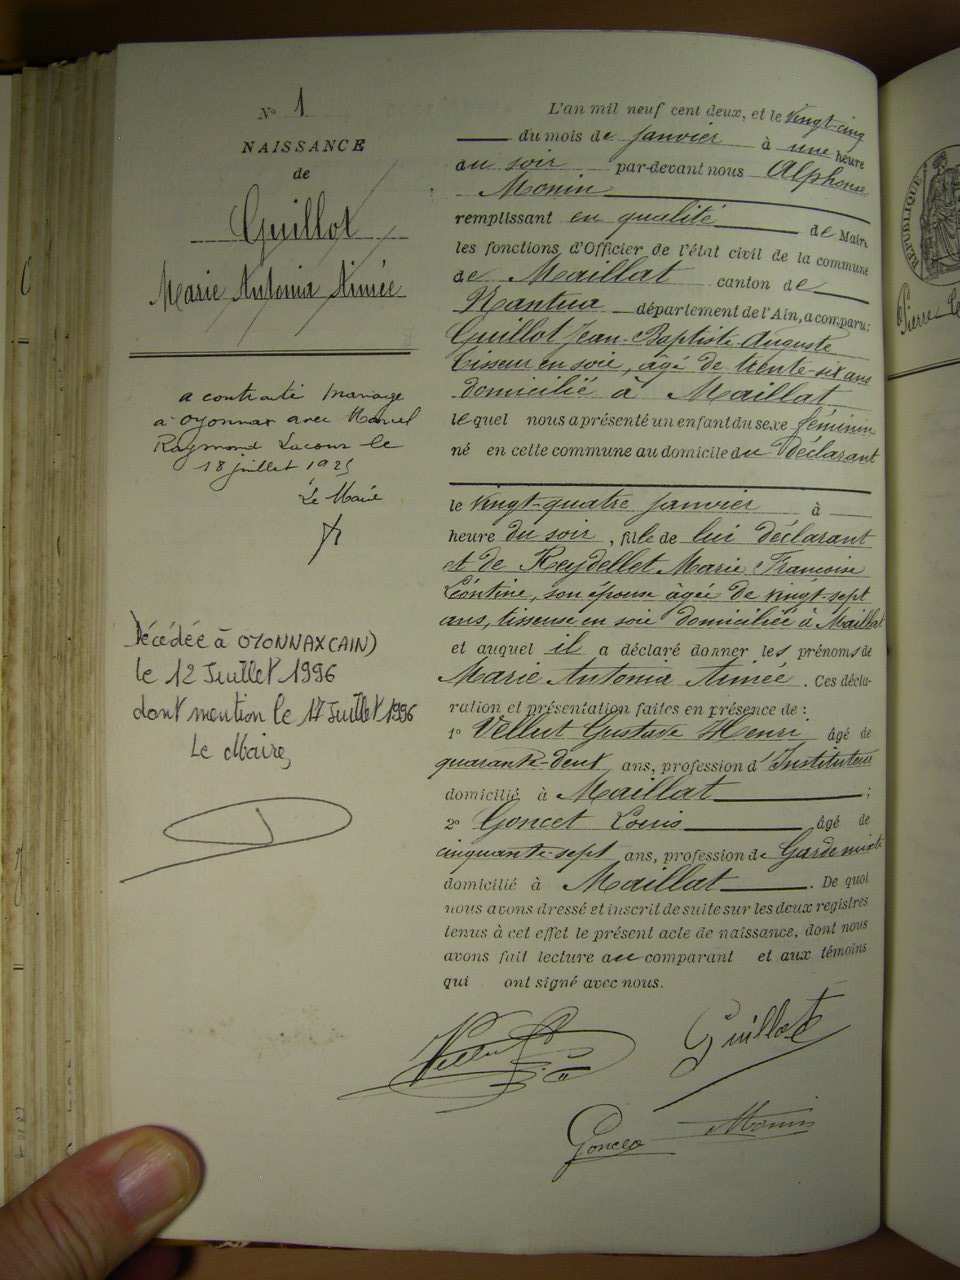 N° 1
NAISSANCE
de
Guillot
Marie Antonia Aimée
a contracté mariage
à Oyonnax avec Marcel
Raymond Lacour le
18 juillet 1925
Le Maire
Décédée à OYONNAX (AIN)
le 12 Juillet 1996
dont mention le 17 Juillet 1996
Le Maire,
L'an mil neuf cent deux, et le vingt-cinq
du mois de janvier à une heure
au soir par-devant nous Alphonse
Monin
remplissant en qualité de Maire
les fonctions d'Officier de l'état civil de la commune
de Maillat canton de
Nantua département de l'Ain, a comparu:
Guillot Jean-Baptiste-Auguste
tisseur en soie, âgé de trente-six ans
domicilié à Maillat
lequel nous a présenté un enfant du sexe féminin
né en cette commune au domicile du déclarant
le vingt-quatre janvier à
heure du soir, fille de lui déclarant
et de Reydellet Marie Françoise
Léontine, son épouse âgée de vingt-sept
ans, tisseuse en soie domiciliée à Maillat
et auquel il a déclaré donner les prénoms de
Marie Antonia Aimée. Ces décla-
ration et présentation faites en présence de :
1° Vellut Gustave Henri âgé de
quarante-deux ans, profession d'Instituteur
domicilié à Maillat ;
2° Goncet Louis âgé de
cinquante-sept ans, profession de Garde mixte
domicilié à Maillat. De quoi
nous avons dressé et inscrit de suite sur les deux registres
tenus à cet effet le présent acte de naissance, dont nous
avons fait lecture au comparant et aux témoins
qui ont signé avec nous.
Vellut
Guillot
Goncet
Monin
RÉPUBLIQUE
Pierre